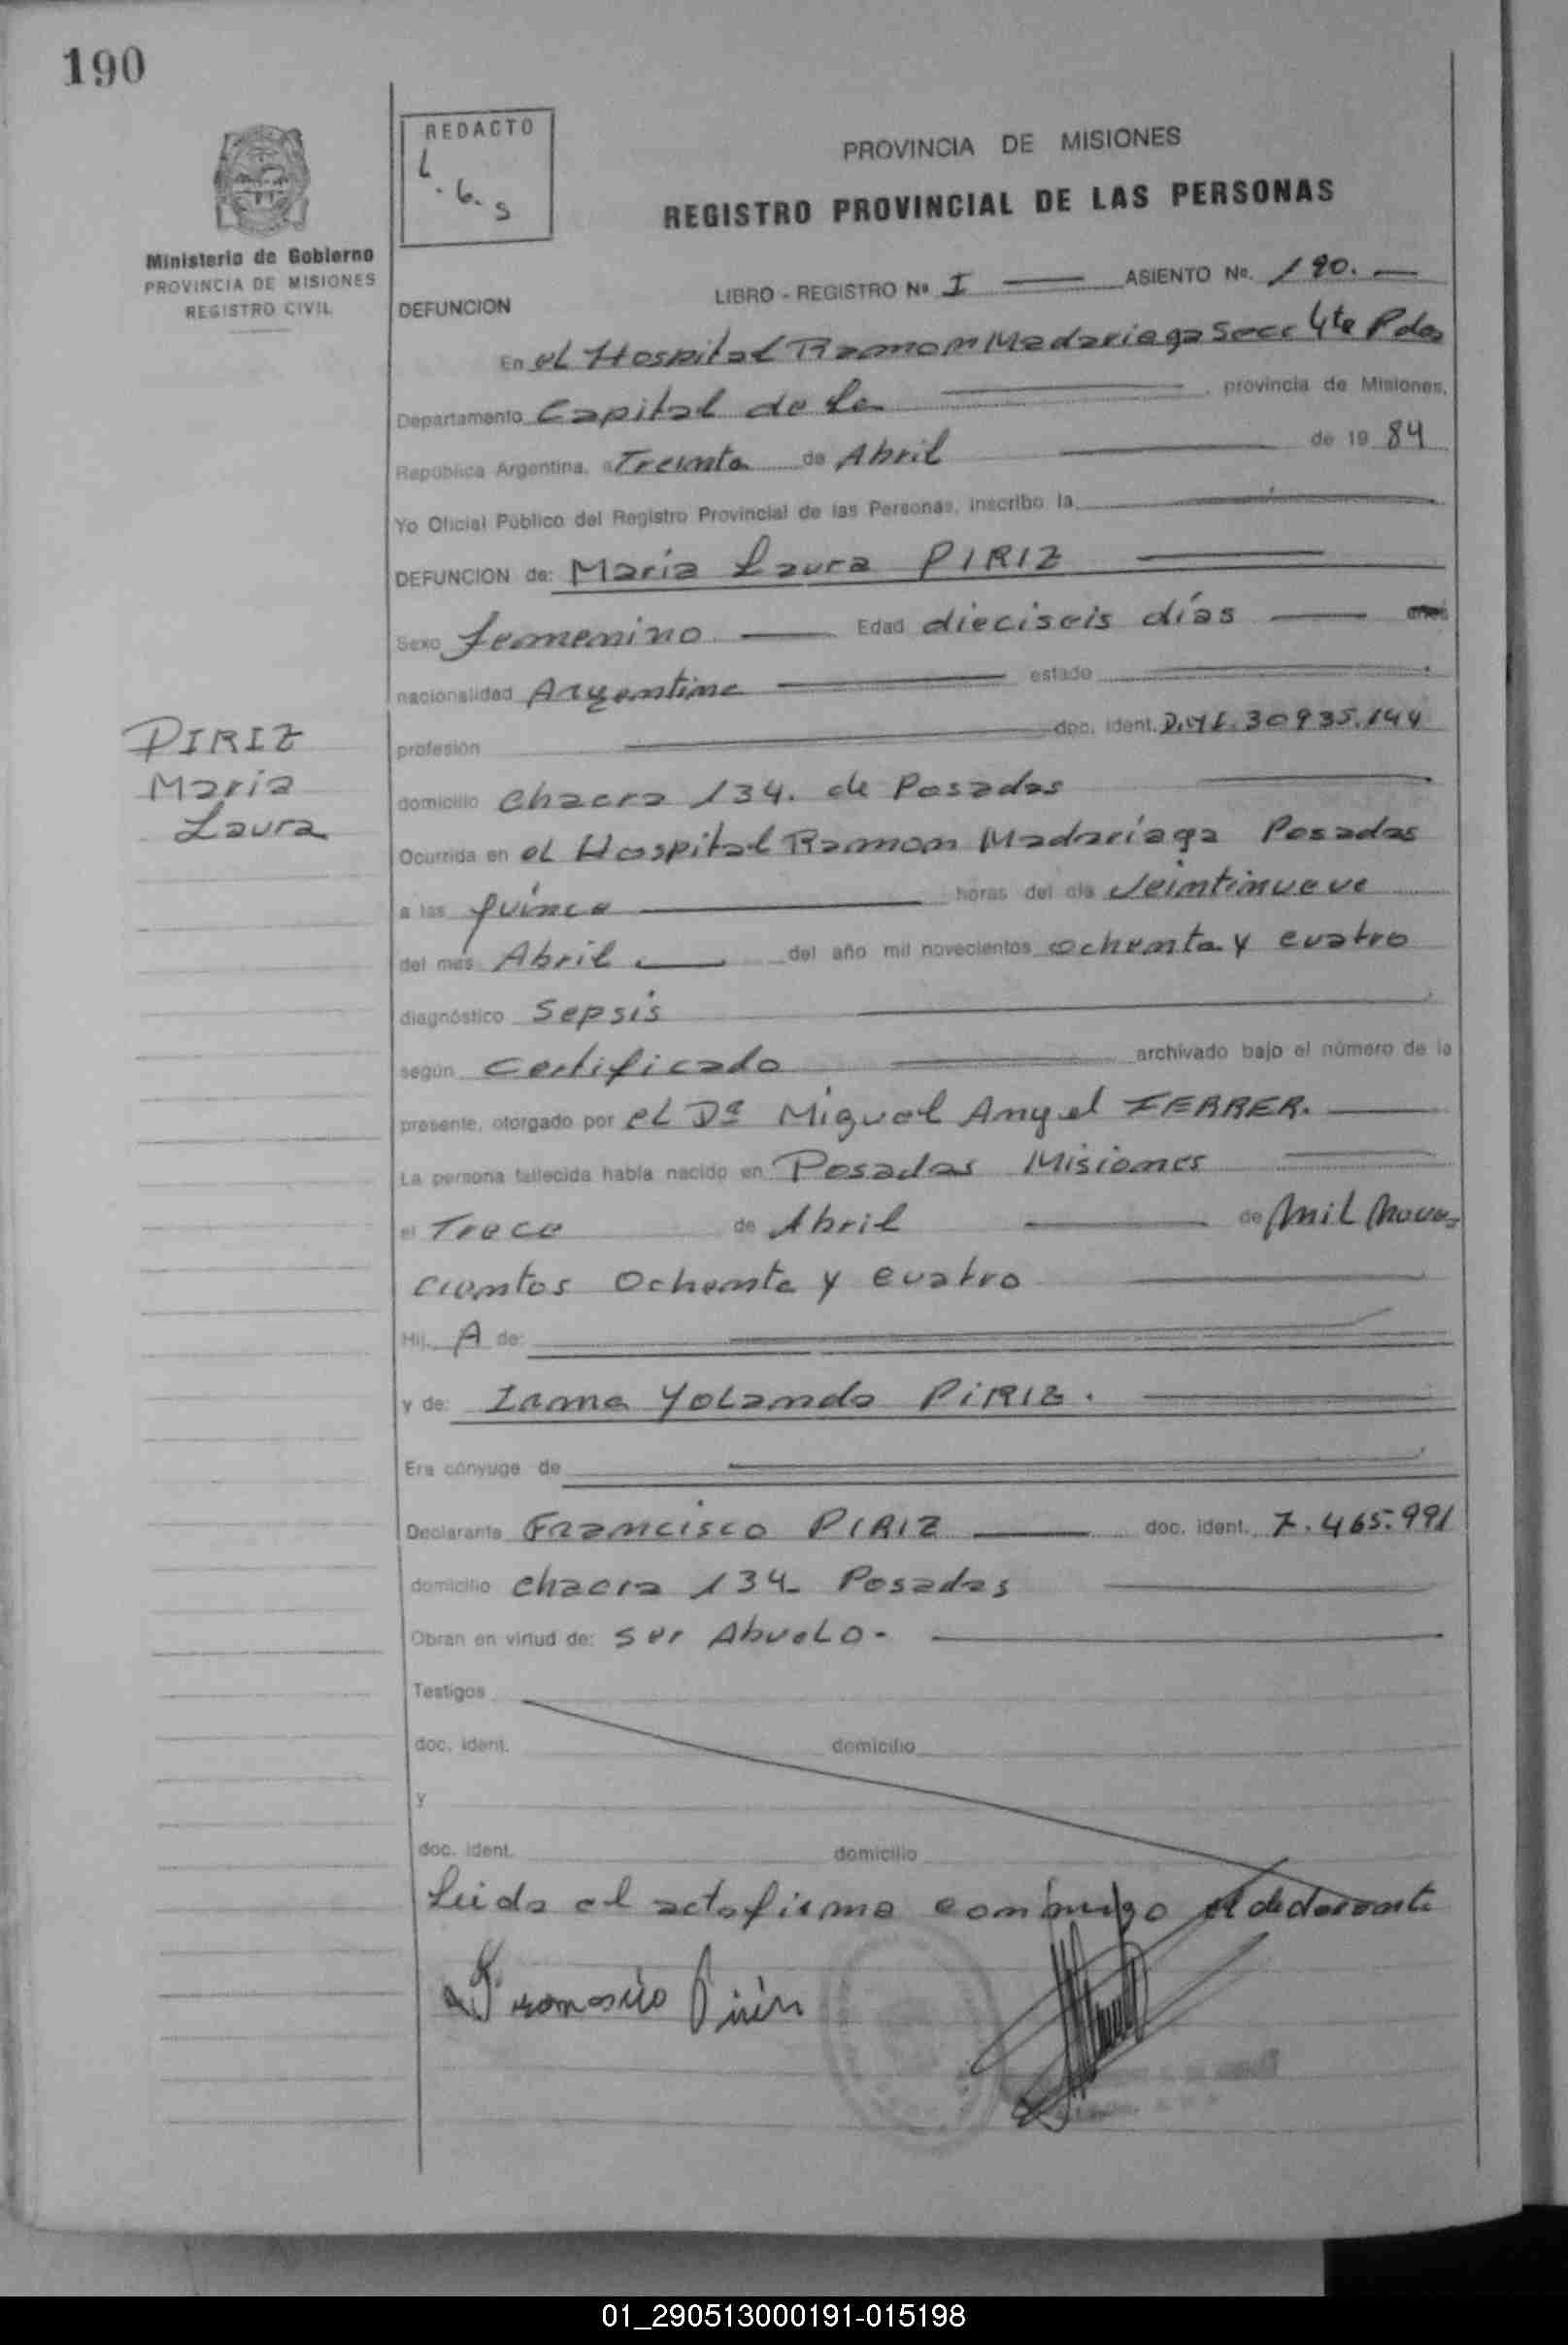 190
REDACTO
L.G.S
Ministerio de Gobierno
PROVINCIA DE MISIONES
REGISTRO CIVIL
PROVINCIA DE MISIONES
REGISTRO PROVINCIAL DE LAS PERSONAS
DEFUNCION LIBRO - REGISTRO Nº I ASIENTO Nº. 190.
En el Hospital Ramon Madariaga Secc 4ta Pdas
Departamento Capital de la provincia de Misiones,
República Argentina, a Treinta de Abril de 19 84
Yo Oficial Público del Registro Provincial de las Personas, inscribo la
DEFUNCION de: Maria Laura PIRIZ
Sexo femenino Edad dieciseis días
nacionalidad Argentina estado
profesión doc. ident. D.N.I. 30935.144
PIRIZ
Maria
Laura
domicilio Chacra 134. de Posadas
Ocurrida en el Hospital Ramon Madariaga Posadas
a las quince horas del día Veintinueve
del mes Abril del año mil novecientos ochenta y cuatro
diagnóstico Sepsis
según Certificado archivado bajo el número de la
presente, otorgado por el Dr Miguel Angel FERRER.
La persona fallecida había nacido en Posadas Misiones
el Trece de Abril de Mil Nove-
cientos Ochenta y cuatro
Hij A de:
y de: Irma Yolanda PIRIZ.
Era cónyuge de
Declarante Francisco PIRIZ doc. ident. 7.465.991
domicilio Chacra 134- Posadas
Obran en virtud de: ser Abuelo-
Testigos
doc. ident. domicilio
y
doc. ident. domicilio
Leida el acta firma conmigo el declarante
Francisco Piriz
01_290513000191-015198